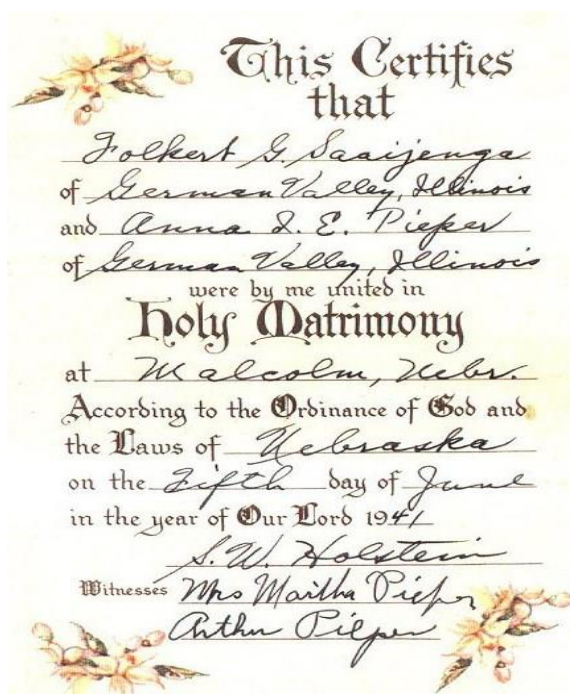 This Certifies
that
Folkert G. Saaijenga
of German Valley, Illinois
and Anna I. E. Pieper
of German Valley, Illinois
were by me united in
Holy Matrimony
at Malcolm, Nebr.
According to the Ordinance of God and
the Laws of Nebraska
on the Fifth day of June
in the year of Our Lord 1941
S. W. Holstein
Witnesses Mrs Martha Pieper
Arthur Pieper